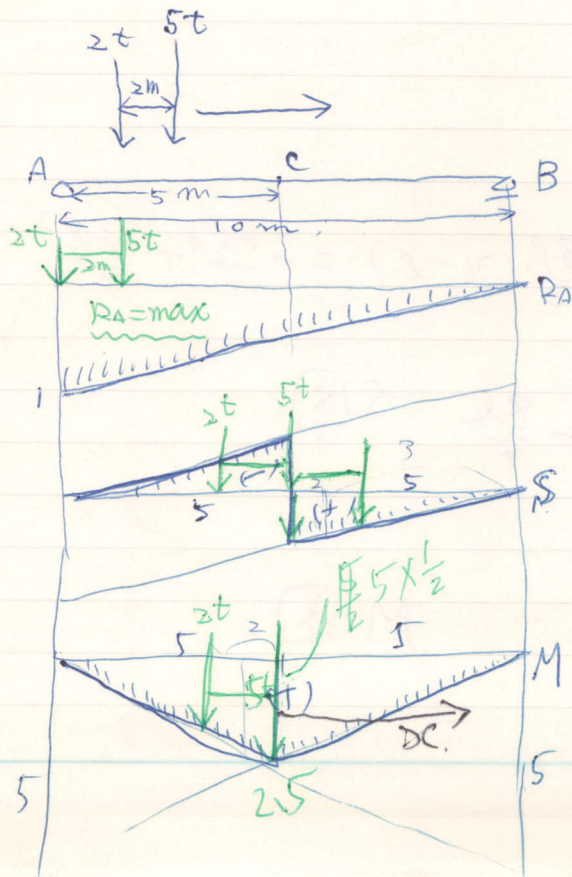 2t 5t
2m
A C B
5m
10m.
2t 5t
2m
RA
RA=max
1
2t 5t
3
(-) 2 5
5 (+) S
5×1/2
2t
5 2 5 M
5(+)
DC.
5 2.5 5